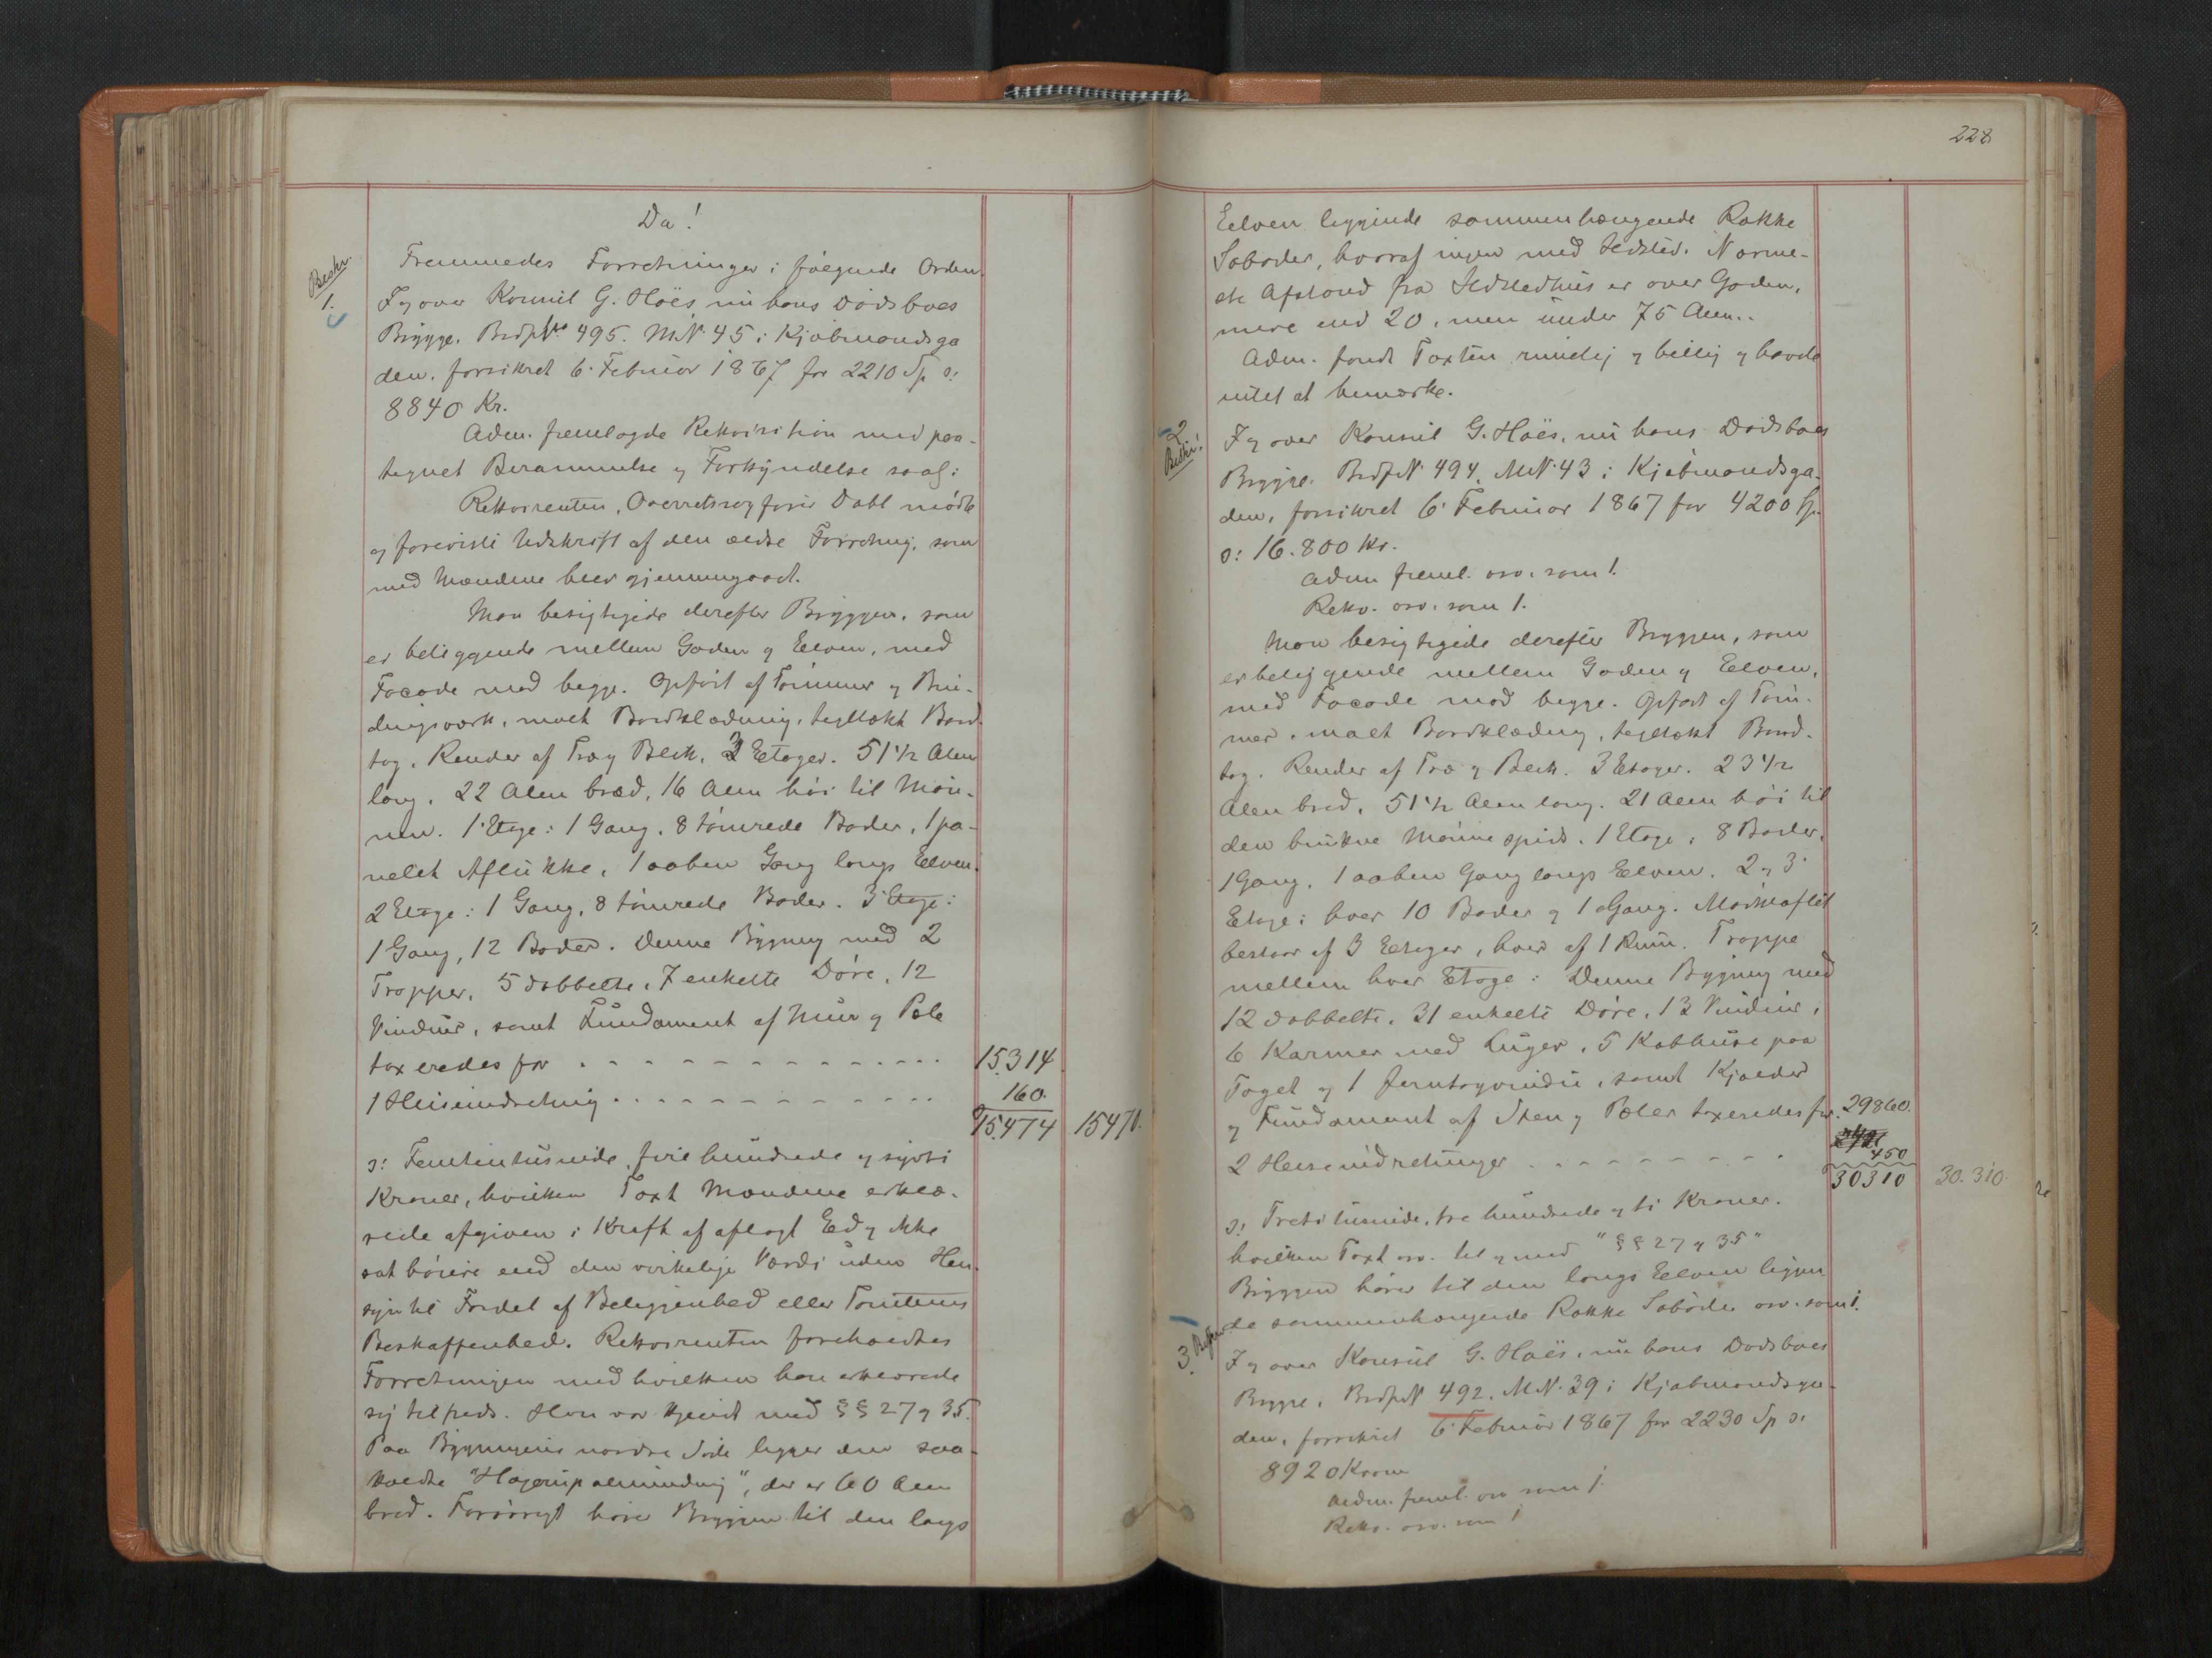 Da!
Beskr.
1.
Fremmedes Forretninger i følgende Orden.
F og over Konsul G. Høës, nu hans Dødsboes
Brygge. Brdp No 495. MN. 45 i Kjøbmandsga
den. forsikret 6. Februar 1867 for 2210 Sp ɔ:
8840 Kr.
Adm. fremlagde Rekvisition med paa-
tegnet Berammelse og Forkyndelse saal:
Rekvirenten, Overretssagfører Dahl mødte
og foreviste Udskrift af den ældre Forretning, som
med Mændene blev gjennemgaaet.
Man besigtigede derefter Bryggen, som
er beliggende mellem Gaden og Elven, med
Facade mod begge. Opført af Tømmer og Bin-
dingsværk, malt Bordklædning, teglsækt Bord
tag, Render af Træ og Blik. 3 Etager. 51 1/2 Alen
lang, 22 Alen bred, 16 Alen høi til Møn-
nen. 1 Etage: 1 Gang, 8 tømrede Boder, 1 pa-
nelet Aflukke, 1 aaben Gang langs Elven.
2 Etage: 1 Gang, 8 tømrede Boder. 3 Etage:
1 Gang, 12 Boder. Denne Bygning med 2
Trapper, 5 dobbelte, 7 enkelte Døre, 12
Vinduer, samt Fundament af Mur og Pæle
taxeredes for 15.314
1 Heiseindretning 160.
15.474 15470.
ɔ: Femtentusinde, fire hundrede og sytti
Kroner, hvilken Taxt Mændene erklæ-
rede afgiven i Kraft af aflagt Ed og ikke
sat høiere end den virkelige Værdi uden Hen-
syn til Fordel af Beliggenhed eller Tomtens
Beskaffenhed. Rekvirenten foreholdtes
Forretningen med hvilken han erklærede
sig tilfreds. Han var kjendt med §§ 27 og 35.
Paa Bygningens nordre Side ligger den saa-
kaldte "Hagerupalmending", der er 60 Alen
bred. Forøvrigt hører Bryggen til den langs
228
Eelven liggende sammenhængende Række
Søboder, hvoraf ingen med Ildsted. Nærme-
ste Afstand fra Ildstedhus er over Gaden,
mere end 20, men under 75 Alen.
Adm. fandt Taxten rimelig og billig og havde
intet at bemærke.
2
Beskr!
F og over Konsul G. Høës, nu hans Dødsboes
Brygge. Brdp N 494. MN. 43 i Kjøbmandsga-
den, forsikret 6. Februar 1867 for 4200 Sp.
ɔ: 16.800 Kr.
Adm. freml. osv. som 1.
Rekv. osv. som 1.
Man besigtigede derefter Bryggen, som
er beliggende mellem Gaden og Eelven,
med Facade mod begge. Opført af Tøm-
mer, malt Bordklædning, teglsækt Bord-
tag. Render af Træ og Blik. 3 Etager. 23 1/2
Alen bred, 51 1/2 Alen lang. 21 Alen høi til
den brukne Mønnespids. 1 Etage: 8 Boder,
1 Gang, 1 aaben Gang langs Eelven. 2 og 3
Etage: hver 10 Boder og 1 Gang. Mørkloftet
bestaar af 3 Etager, hver af 1 Rum. Trappe
mellem hver Etage: Denne Bygning med
12 dobbelte, 31 enkelte Døre, 13 Vinduer,
6 Karmer med Luger, 5 Kobhuse paa
Taget og 1 Jerntagvindu, samt Kjælder
og Fundament af Sten og Pæler taxeredes for 29860.
2 Heiseindretninger 450
30310 30.310
ɔ: Tretitusinde, tre hundrede og ti Kroner.
hvilken Taxt osv. til og med "§§ 27 og 35"
Bryggen hører til den langs Eelven liggen
de sammenhængende Række Søboder osv. som 1.
3.
F og over Konsul G. Høës, nu hans Dødsboes
Brygge, Brdp N 492. MN. 39 i Kjøbmandsga-
den, forsikret 6. Februar 1867 for 2230 Sp ɔ:
8920 Kroner
Adm. freml. osv som 1.
Rekv. osv. som 1